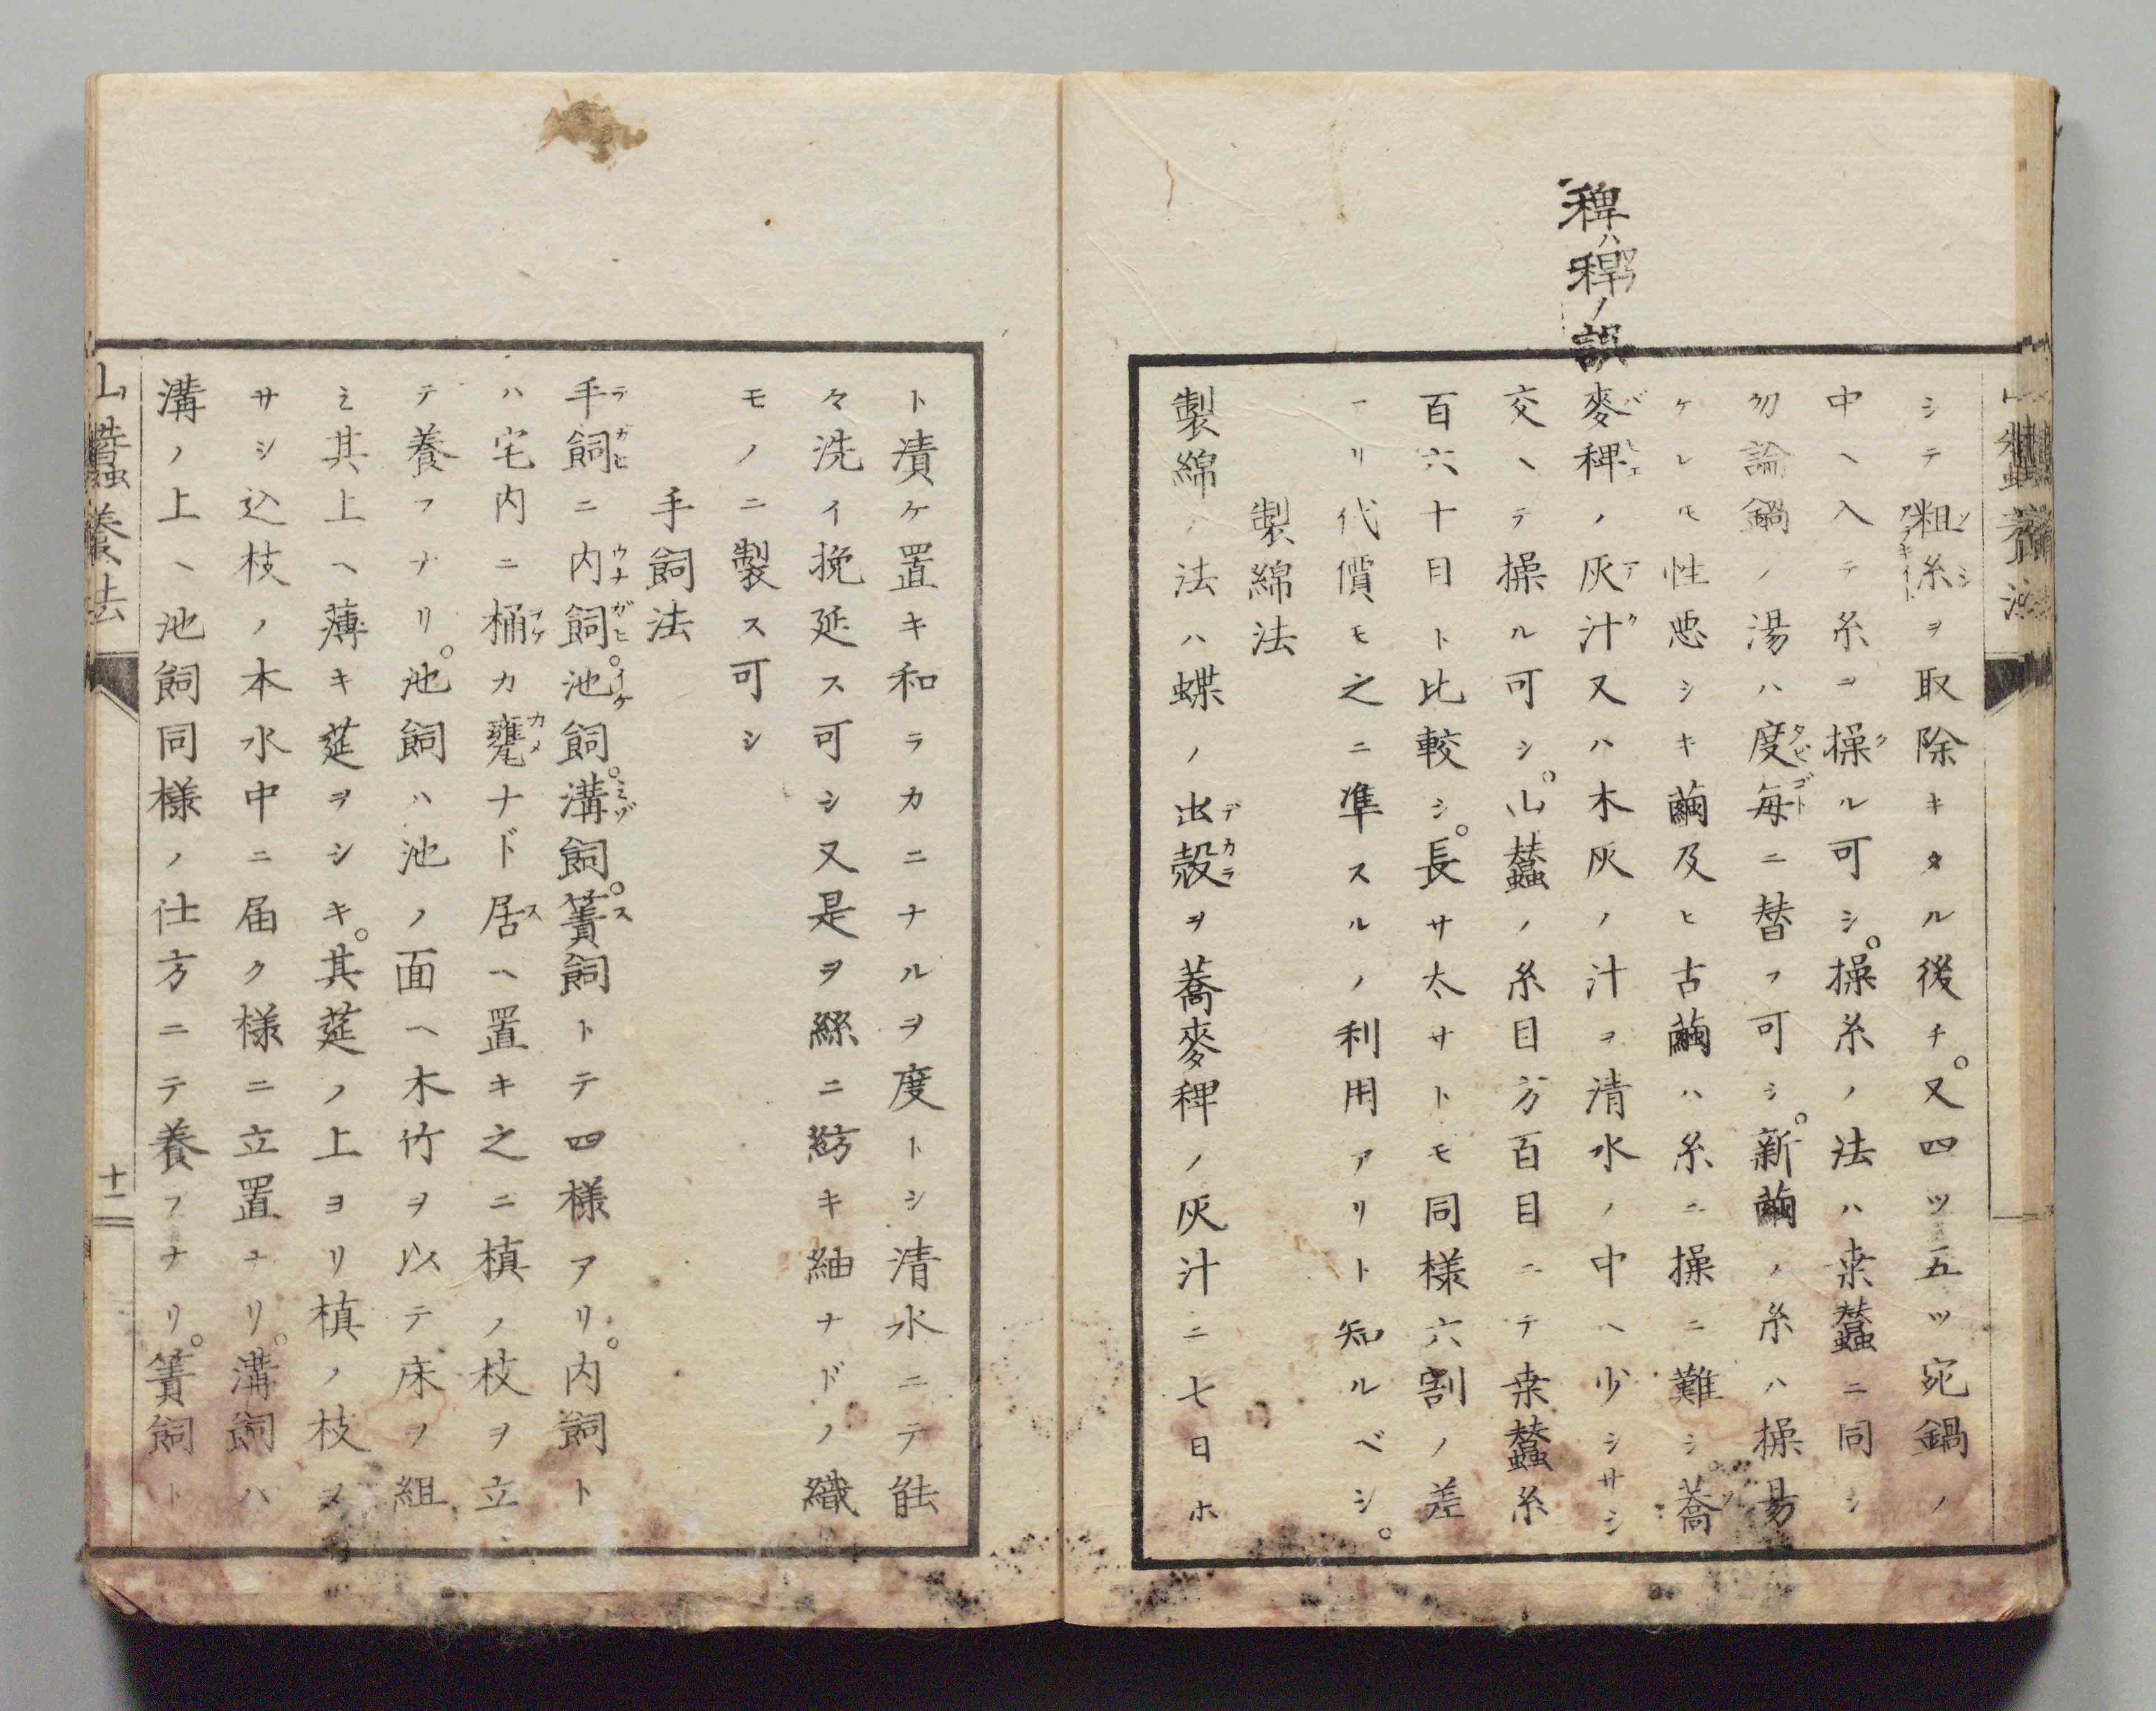 稗ハ稈ノ誤
シテ粗糸ヲ取除キタル後チ。又四ツ五ツ宛鍋ノ
中ヘ入テ糸ヲ操ル可シ。操糸ノ法ハ桒蠶ニ同シ
勿論鍋ノ湯ハ度毎ニ替フ可シ。新繭ノ糸ハ操易
ケレモ性悪シキ繭及ヒ古繭ハ糸ニ操ニ難シ。蕎
麥稗ノ灰汁又ハ木灰ノ汁ヲ清水ノ中ヘ少シサシ
交ヘテ操ル可シ。山蠶ノ糸目方百目ニテ桒蠶糸
百六十目ト比較シ。長サ太サトモ同様六割ノ差
アリ代價モ之ニ準スルノ利用アリト知ルベシ。
製綿法
製綿ノ法ハ蝶ノ出殻ヲ蕎麥稗ノ灰汁ニ七日ホ
ト漬ケ置キ和ラカニナルヲ度トシ清水ニテ能
々洗イ挽延ス可シ又是ヲ絲ニ紡キ紬ナドノ織
モノニ製ス可シ
手飼法
手飼ニ内飼。池飼。溝飼。簀飼トテ四様アリ。内飼ト
ハ宅内ニ桶カ甕ナド居ヘ置キ之ニ槙ノ枝ヲ立
テ養フナリ。池飼ハ池ノ面ヘ木竹ヲ以テ床ヲ組
ミ其上ヘ薄キ莚ヲシキ。其莚ノ上ヨリ槙ノ枝ヲ
サシ込枝ノ本水中ニ届ク様ニ立置ナリ。溝飼ハ
溝ノ上ヘ池飼同様ノ仕方ニテ養フナリ。簀飼ト
山蠶養法
十二